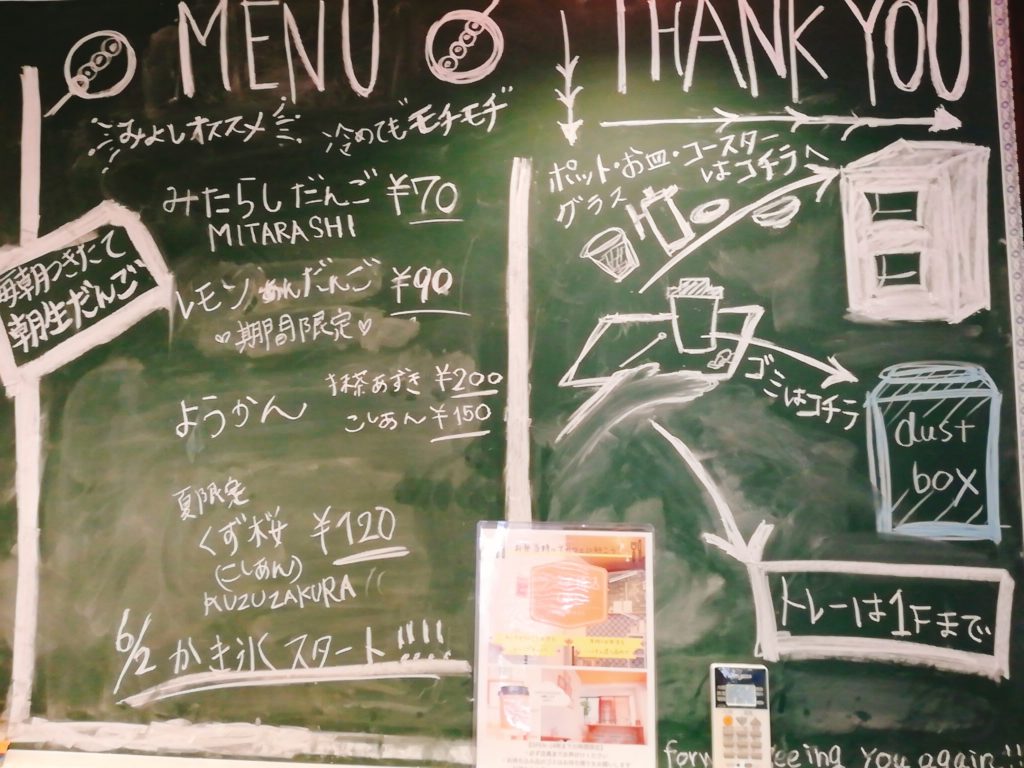 MENU
みよしオススメ
冷めてもモチモチ
みたらしだんご ¥70
MITARASHI
毎朝つきたて
朝生だんご
レモンあんだんご ¥90
♡期間限定♡
ようかん
抹茶あずき ¥200
こしあん ¥150
夏限定
くず桜 ¥120
(こしあん)
KUZUZAKURA
6/2 かき氷スタート!!!!
THANK YOU
ポット・お皿・コースター
グラス
はコチラへ
ゴミはコチラ
dust
box
トレーは1Fまで
you again!!